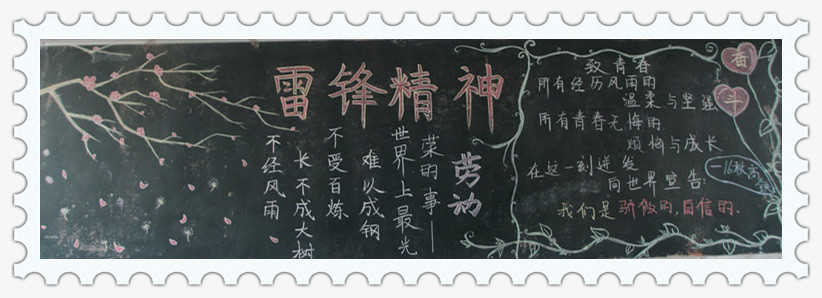 雷锋精神
不经风雨
长不成大树
不受百炼
难以成钢
世界上最光
荣的事——
劳动
致青春
所有经历风雨的
温柔与坚强
所有青春无悔的
烦恼与成长
在这一刻迸发
向世界宣告:
我们是骄傲的,自信的.
奋
斗
—16秋高